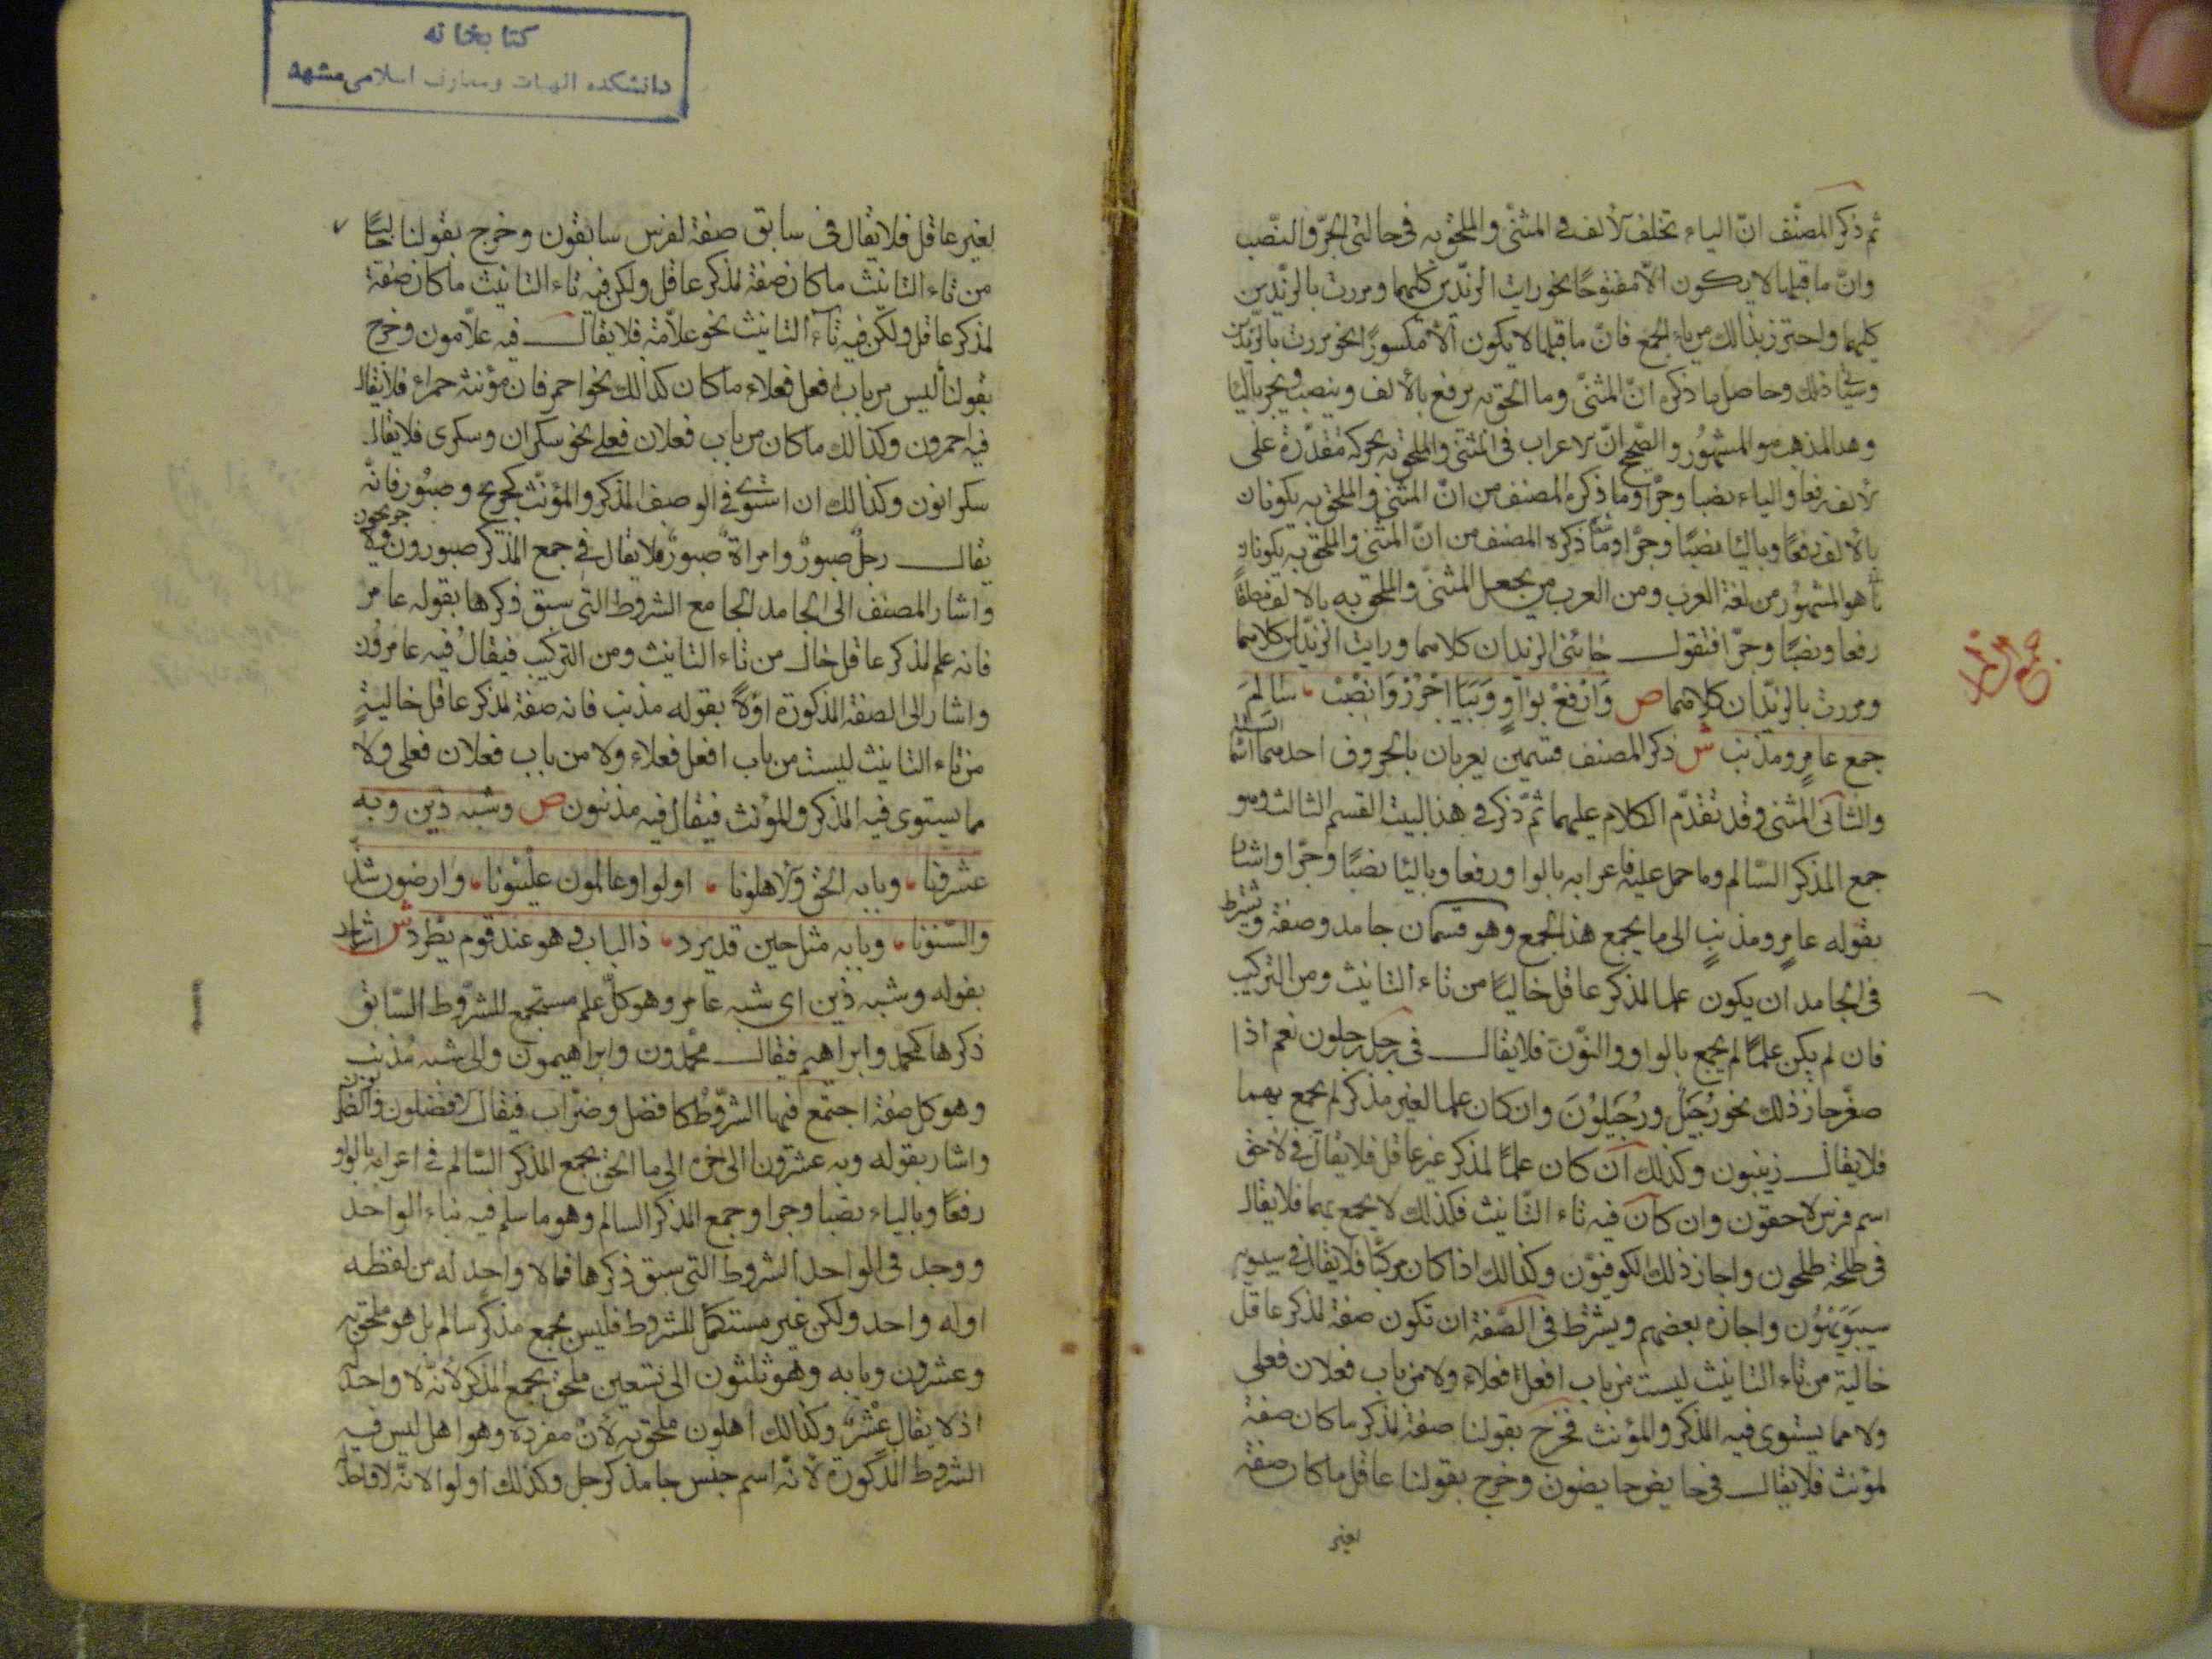 ثم ذكر المصنف انّ الياء تخلف الالف في المثنى والملحق به في حالتى الجرّ والنصب
وانّ ما قبلها لا يكون الّا مفتوحًا نحو رايت الزيدين كليهما ومررت بالزيدين
كليهما واحترز بذالك من ياء الجمع فانّ ما قبلها لا يكون الّا مكسورًا نحو مررت بالزيدين
وسياتى ذلك وحاصل ما ذكره انّ المثنّى وما الحق به يرفع بالألف وينصب ويجر باليا
وهذا المذهب هو المشهور والصّحيح انّ الاعراب في المثنى والملحق به بحركة مقدّرة على
الالف رفعا والياء نصبا وجرّا وما ذكره المصنف من انّ المثنى والملحق به يكونان
بالألف رفعًا وباليا نصبًا وجرًّا وما ذكره المصنف من انّ المثنى والملحق به يكونان
هو المشهور من لغة العرب ومن العرب من يجعل المثنّى والملحق به بالالف مطلقًا
رفعا ونصبًا وجرّا فتقول جائنى الزيدان كلاهما ورايت الزيدان كلاهما
ومررت بالزيدان كلاهما ص وَارْفَعْ بوَاوٍ وَبِيَا اجْرُرْ وَانْصِبْ • سَالِمَ
جمع عامرٍ ومذنب ش ذكر المصنف قسمين يعربان بالحروف احدهما الاسماء الستة
والثانى المثنى وقد تقدّم الكلام عليهما ثمّ ذكر في هذا البيت القسم الثالث وهو
جمع المذكر السّالم وما حمل عليه فاعرابه بالواو رفعا وباليا نصبًا وجرّا واشار
بقوله عامرٍ ومذنبٍ الى ما يجمع هذا الجمع وهو قسمان جامد وصفة ويشترط
فى الجامد ان يكون علما لمذكر عاقل خاليًا من تاء التانيث ومن التركيب
فان لم يكن علمًا لم يجمع بالواو والنّون فلا يقال في رجل رجلون نعم اذا
صغّر جاز ذلك نحو رُجَيل ورُجَيلُونَ وان كان علما لغير مذكر لم يجمع بهما
فلا يقال زينبون وكذلك ان كان علمًا لمذكر غير عاقل فلا يقال في لاحق
اسم فرس لاحقون وان كان فيه تاء التّانيث فكذلك لا يجمع بهما فلا يقال
فى طلحة طلحون واجاز ذلك الكوفيّون وكذالك اذا كان مركبًا فلا يقال في سيبويه
سيبَوَيهُون واجازه بعضهم ويشترط فى الصّفة ان تكون صفة لمذكر عاقل
خالية من تاء التانيث ليست من باب افعل فعلاء ولا من باب فعلان فعلى
ولا مما يستوى فيه المذكر والمؤنث فخرج بقولنا صفة لمذكر ما كان صفة
لمؤنث فلا يقال في حايض حايضون وخرج بقولنا عاقل ما كان صفة
لغير
جمع مذكر
كتابخانه
دانشكده الهيات ومعارف اسلامى مشهد
لغير عاقل فلا يقال في سابق صفة لفرس سابقون وخرج بقولنا خاليًا
من تاء التانيث ما كان صفة لمذكر عاقل ولكن فيه تاء التانيث ما كان صفة
لمذكر عاقل ولكن فيه تاء التانيث نحو علّامة فلا يقال فيه علّامون وخرج
بقولنا ليس من باب افعل فعلاء ما كان كذالك نحو احمر فان مؤنثه حمراء فلا يقال
فيه احمرون وكذالك ما كان من باب فعلان فعلى نحو سكران وسكرى فلا يقال
سكرانون وكذالك ان استوى في الوصف المذكر والمؤنّث كجريح وصبُور فانّه
يقال رجلٌ صبورٌ وامراة صبورٌ فلا يقال في جمع المذكر صبورون ولا جريحون
واشار المصنف الى الجامد الجامع الشروط التى سبق ذكرها بقوله عامر
فانه علم لمذكر عاقل خال من تاء التانيث ومن التركيب فيقال فيه عامرون
واشار الى الصفة المذكورة اوّلاً بقوله مذنب فانه صفة لمذكر عاقل خاليةٍ
من تاء التانيث ليست من باب افعل فعلاء ولا من باب فعلان فعلى ولا
مما يستوى فيه المذكر والمؤنث فيقال فيه مذنبون ص وشبه ذين وبه
عشرونا • وبابه الحق والاهلونا • اولوا وعالمون علّيّونا • وارضون شذّ
والسّنونا • وبابه مثل حين قد يرد • ذا الباب وهو عند قوم يطّرد ش اشار
بقوله وشبه ذين اى شبه عامر وهو كلّ علم مستجمع للشّروط السّابق
ذكرها كمحمد وابراهيم فيقال محمّدون وابراهيمون والى شبه مذنب
وهو كل صفة اجتمع فيها الشرّوط كافضل وضرّاب فيقال الافضلون والضرّابون
واشار بقوله وبه عشرونا الى اخره الى ما الحق بجمع المذكر السّالم في اعرابه بالواو
رفعًا وبالياء نصبا وجرا وجمع المذكر السالم وهو ما سلم فيه بناء الواحد
ووجد فى الواحد الشروط التى سبق ذكرها فما لا واحد له من لفظه
او له واحد ولكن غير مستكمل للشروط فليس بجمع مذكر سالم بل هو ملحق به
وعشرون وبابه وهو ثلثون الى تسعين ملحق بجمع المذكر لأنّه لا واحد له
اذ لا يقال عشر وكذالك اهلون ملحق به لأنّ مفرده وهو اهل ليس فيه
الشروط المذكورة لأنّه اسم جنس جامد كرجل وكذلك اولوا لانّه لا واحد